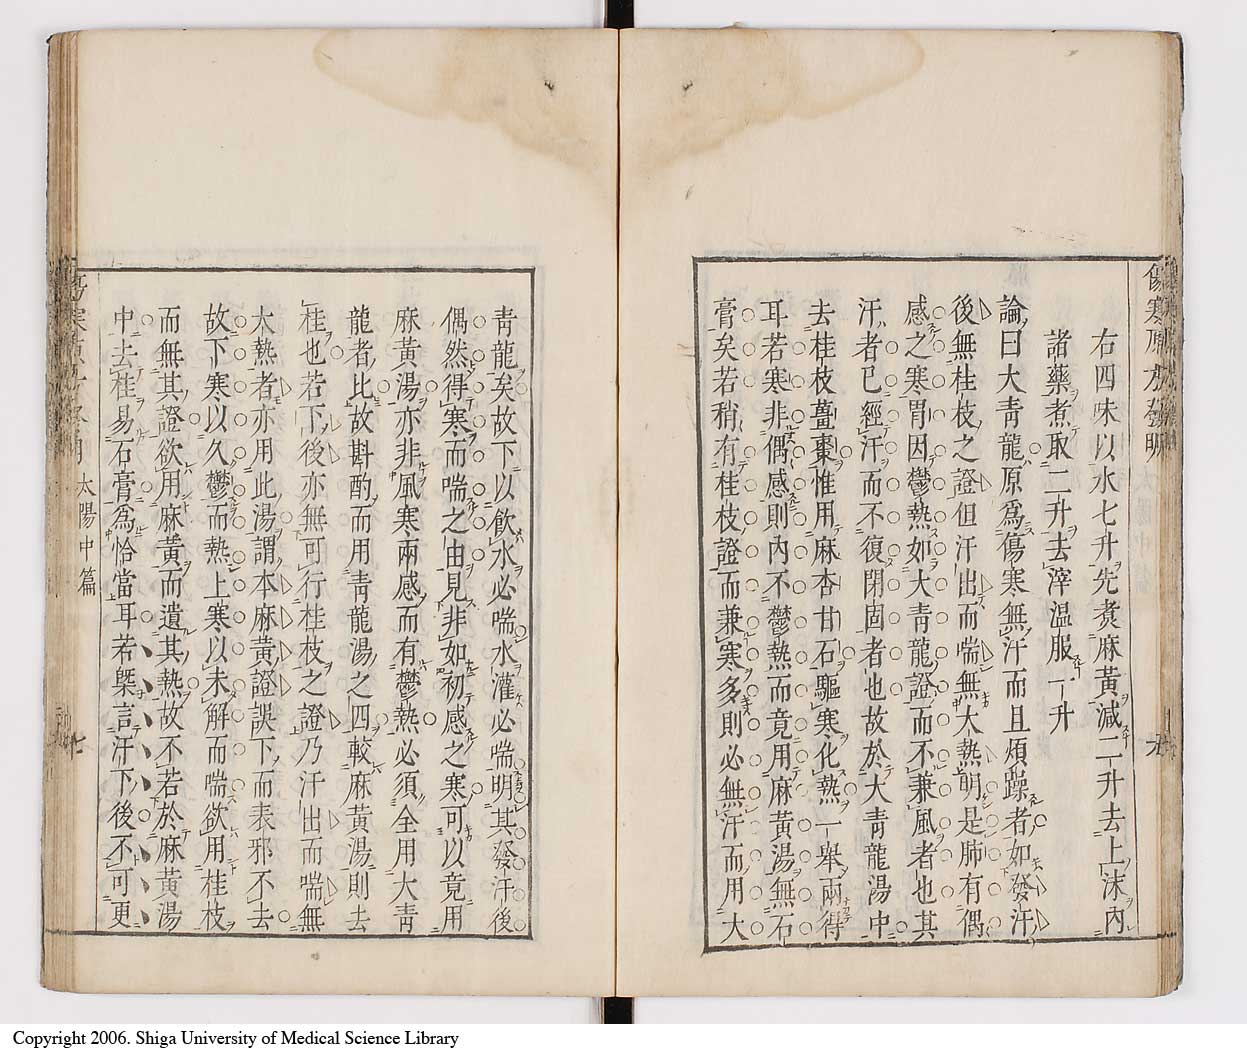 傷寒
右四味以水七升先煑麻黃減二升去上沫內
諸藥煮取二升去滓溫服一升
論曰大青龍原爲傷寒無汗而且煩躁者如發汗
後無桂枝之證但汗出而喘無大熱明是肺有偶
感之寒胃因鬱熱如大青龍證而不兼風者也其
汗者已經汗而不復閉固者也故於大青龍湯中
去桂枝薑棗惟用麻杏甘石驅寒化熱一舉兩得
耳若寒非偶感則內不鬱熱而竟用麻黃湯無石
膏矣若稍有桂枝證而兼寒多則必無汗而用大
青龍矣故下以飲水必喘水灌必喘明其發汗後
偶然得寒而喘之由見非如初感之寒可以竟用
麻黃湯亦非風寒兩感而有鬱熱必須全用大青
龍者比故斟酌而用青龍湯之四較麻黃湯則去
桂也若下後亦無可行桂枝之證乃汗出而喘無
大熱者亦用此湯謂本麻黃證誤下而表邪不去
故下寒以久鬱而熱上寒以未解而喘欲用桂枝
而無其證欲用麻黃而遺其熱故不若於麻黃湯
中去桂易石膏爲恰當耳若槩言汗下後不可更
太陽中篇
Copyright 2006. Shiga University of Medical Science Library